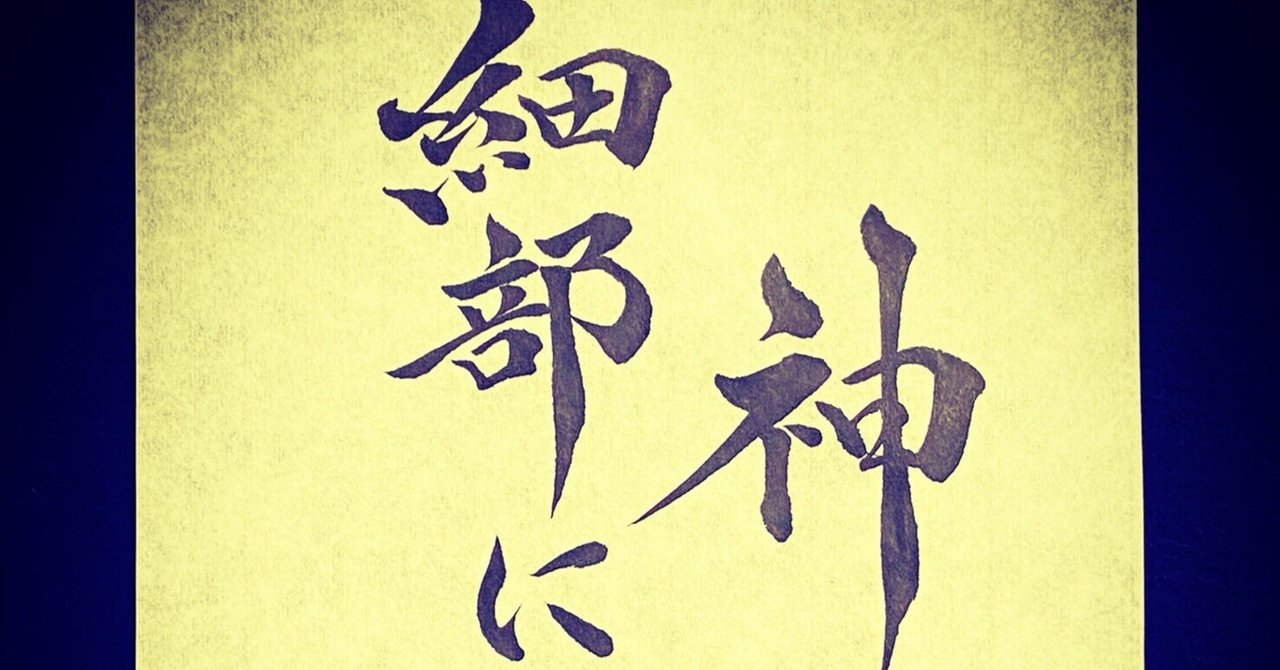 神
細部に